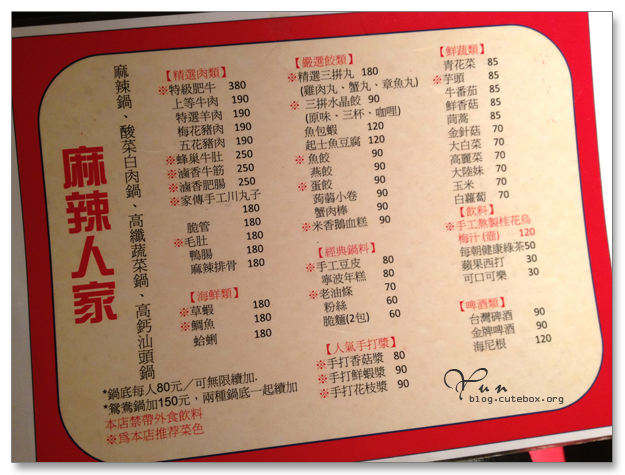 麻辣人家
麻辣鍋、酸菜白肉鍋、高纖蔬菜鍋、高鈣汕頭鍋
【精選肉類】
※特級肥牛 380
上等牛肉 190
特選羊肉 190
梅花豬肉 190
五花豬肉 190
※蜂巢牛肚 250
※滷香牛筋 250
※滷香肥腸 250
※家傳手工川丸子
180
脆管 180
※毛肚 180
鴨腸 180
麻辣排骨 180
【海鮮類】
※草蝦 180
※鯛魚 180
蛤蜊 180
【嚴選餃類】
※精選三拼丸 180
(雞肉丸、蟹丸、章魚丸)
※三拼水晶餃 90
(原味、三杯、咖哩)
魚包蝦 120
起士魚豆腐 120
※魚餃 90
燕餃 90
※蛋餃 90
蒟蒻小卷 90
蟹肉棒 90
※米香鵝血糕 90
【經典鍋料】
※手工豆皮 80
寧波年糕 80
※老油條 70
粉絲 60
脆麵(2包) 60
【人氣手打漿】
※手打香菇漿 80
※手打鮮蝦漿 90
※手打花枝漿 90
【鮮蔬類】
青花菜 85
※芋頭 85
牛番茄 85
鮮香菇 85
茼蒿 85
金針菇 70
大白菜 70
高麗菜 70
大陸妹 70
玉米 70
白蘿蔔 70
【飲料】
※手工熬製桂花烏
梅汁(壺) 120
每朝健康綠茶50
蘋果西打 30
可口可樂 30
【啤酒類】
台灣啤酒 90
金牌啤酒 90
海尼根 120
*鍋底每人80元／可無限續加.
*鴛鴦鍋加150元，兩種鍋底一起續加
本店禁帶外食飲料
※為本店推荐菜色
Yun
blog.cutebox.org